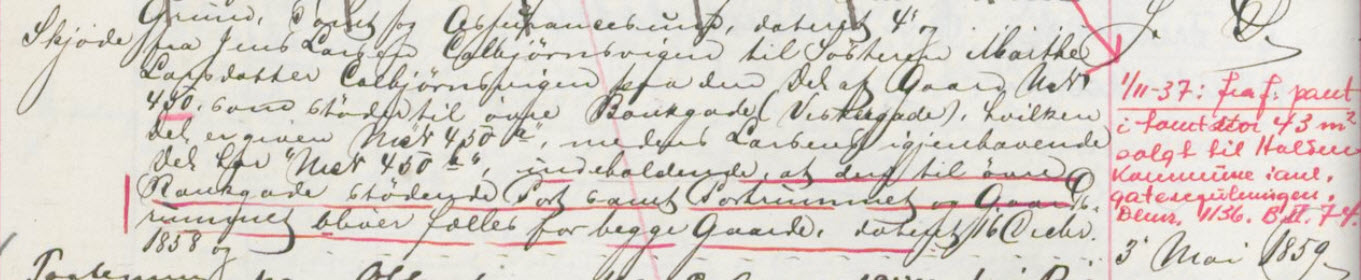 Grund, Tomt og Assurancesum, dateret 4' og
Skjøde fra Jens Larsen Colbjørnsvigen til Søsteren Marthe
Larsdatter Colbjørnsvigen paa den Del af Gaard No
450, som støder til øvre Bankgade (Viskergade), hvilken
del er given
450
, medens Larsens igjenhavende
del har
450
indeholdende, at den til øvre
Bankgade stødende Port samt Portrummet og Gaards-
rummet bliver fælles for begge Gaarde, datert 16 Decbr.
1858 og
1/11-37: fraf. pant
i tomt stor 43 m²
solgt til Halden
Kommune i anl.
gatereguleringen.
1136. B II. 74.
3' Mai 1859